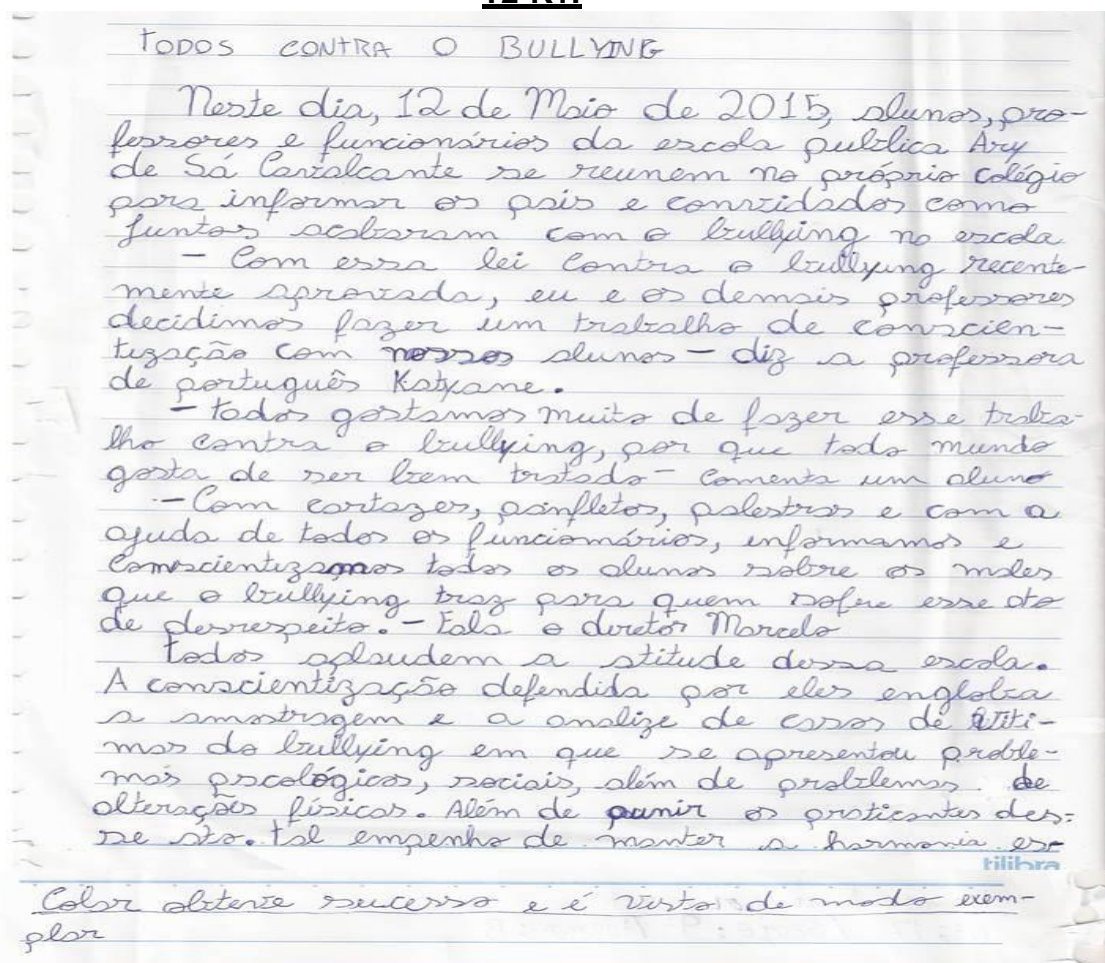 TODOS CONTRA O BULLYING
Neste dia, 12 de Maio de 2015, alunos, pro-
fessores e funcionários da escola publica Ary
de Sá Cavalcante se reunem no próprio colégio
para informar os pais e convidados como
juntos acabaram com o bullying no escola
- Com essa lei contra o bullying recente-
mente aprovada, eu e os demais professores
decidimos fazer um trabalho de conscien-
tização com nossos alunos - diz a professora
de português Katyane.
- todos gostamos muito de fazer esse traba-
lho contra o bullying, por que todo mundo
gosta de ser bem tratado - comenta um aluno
- Com cartazes, panfletos, palestras e com a
ajuda de todos os funcionários, informamos e
conscientizamos todos os alunos sobre os males
que o bullying traz para quem sofre esse ato
de desrespeito. - Fala o diretor Marcelo
todos aplaudem a atitude dessa escola.
A conscientização defendida por eles engloba
a amostragem e a analize de casos de vití-
mas do bullying em que se apresentou proble-
mas pscológicos, sociais, além de problemas de
alterações físicas. Além de punir os praticantes des-
se ato. tal empenho de manter a harmonia es-
tilibra
colar obteve sucesso e é visto de modo exem-
plar